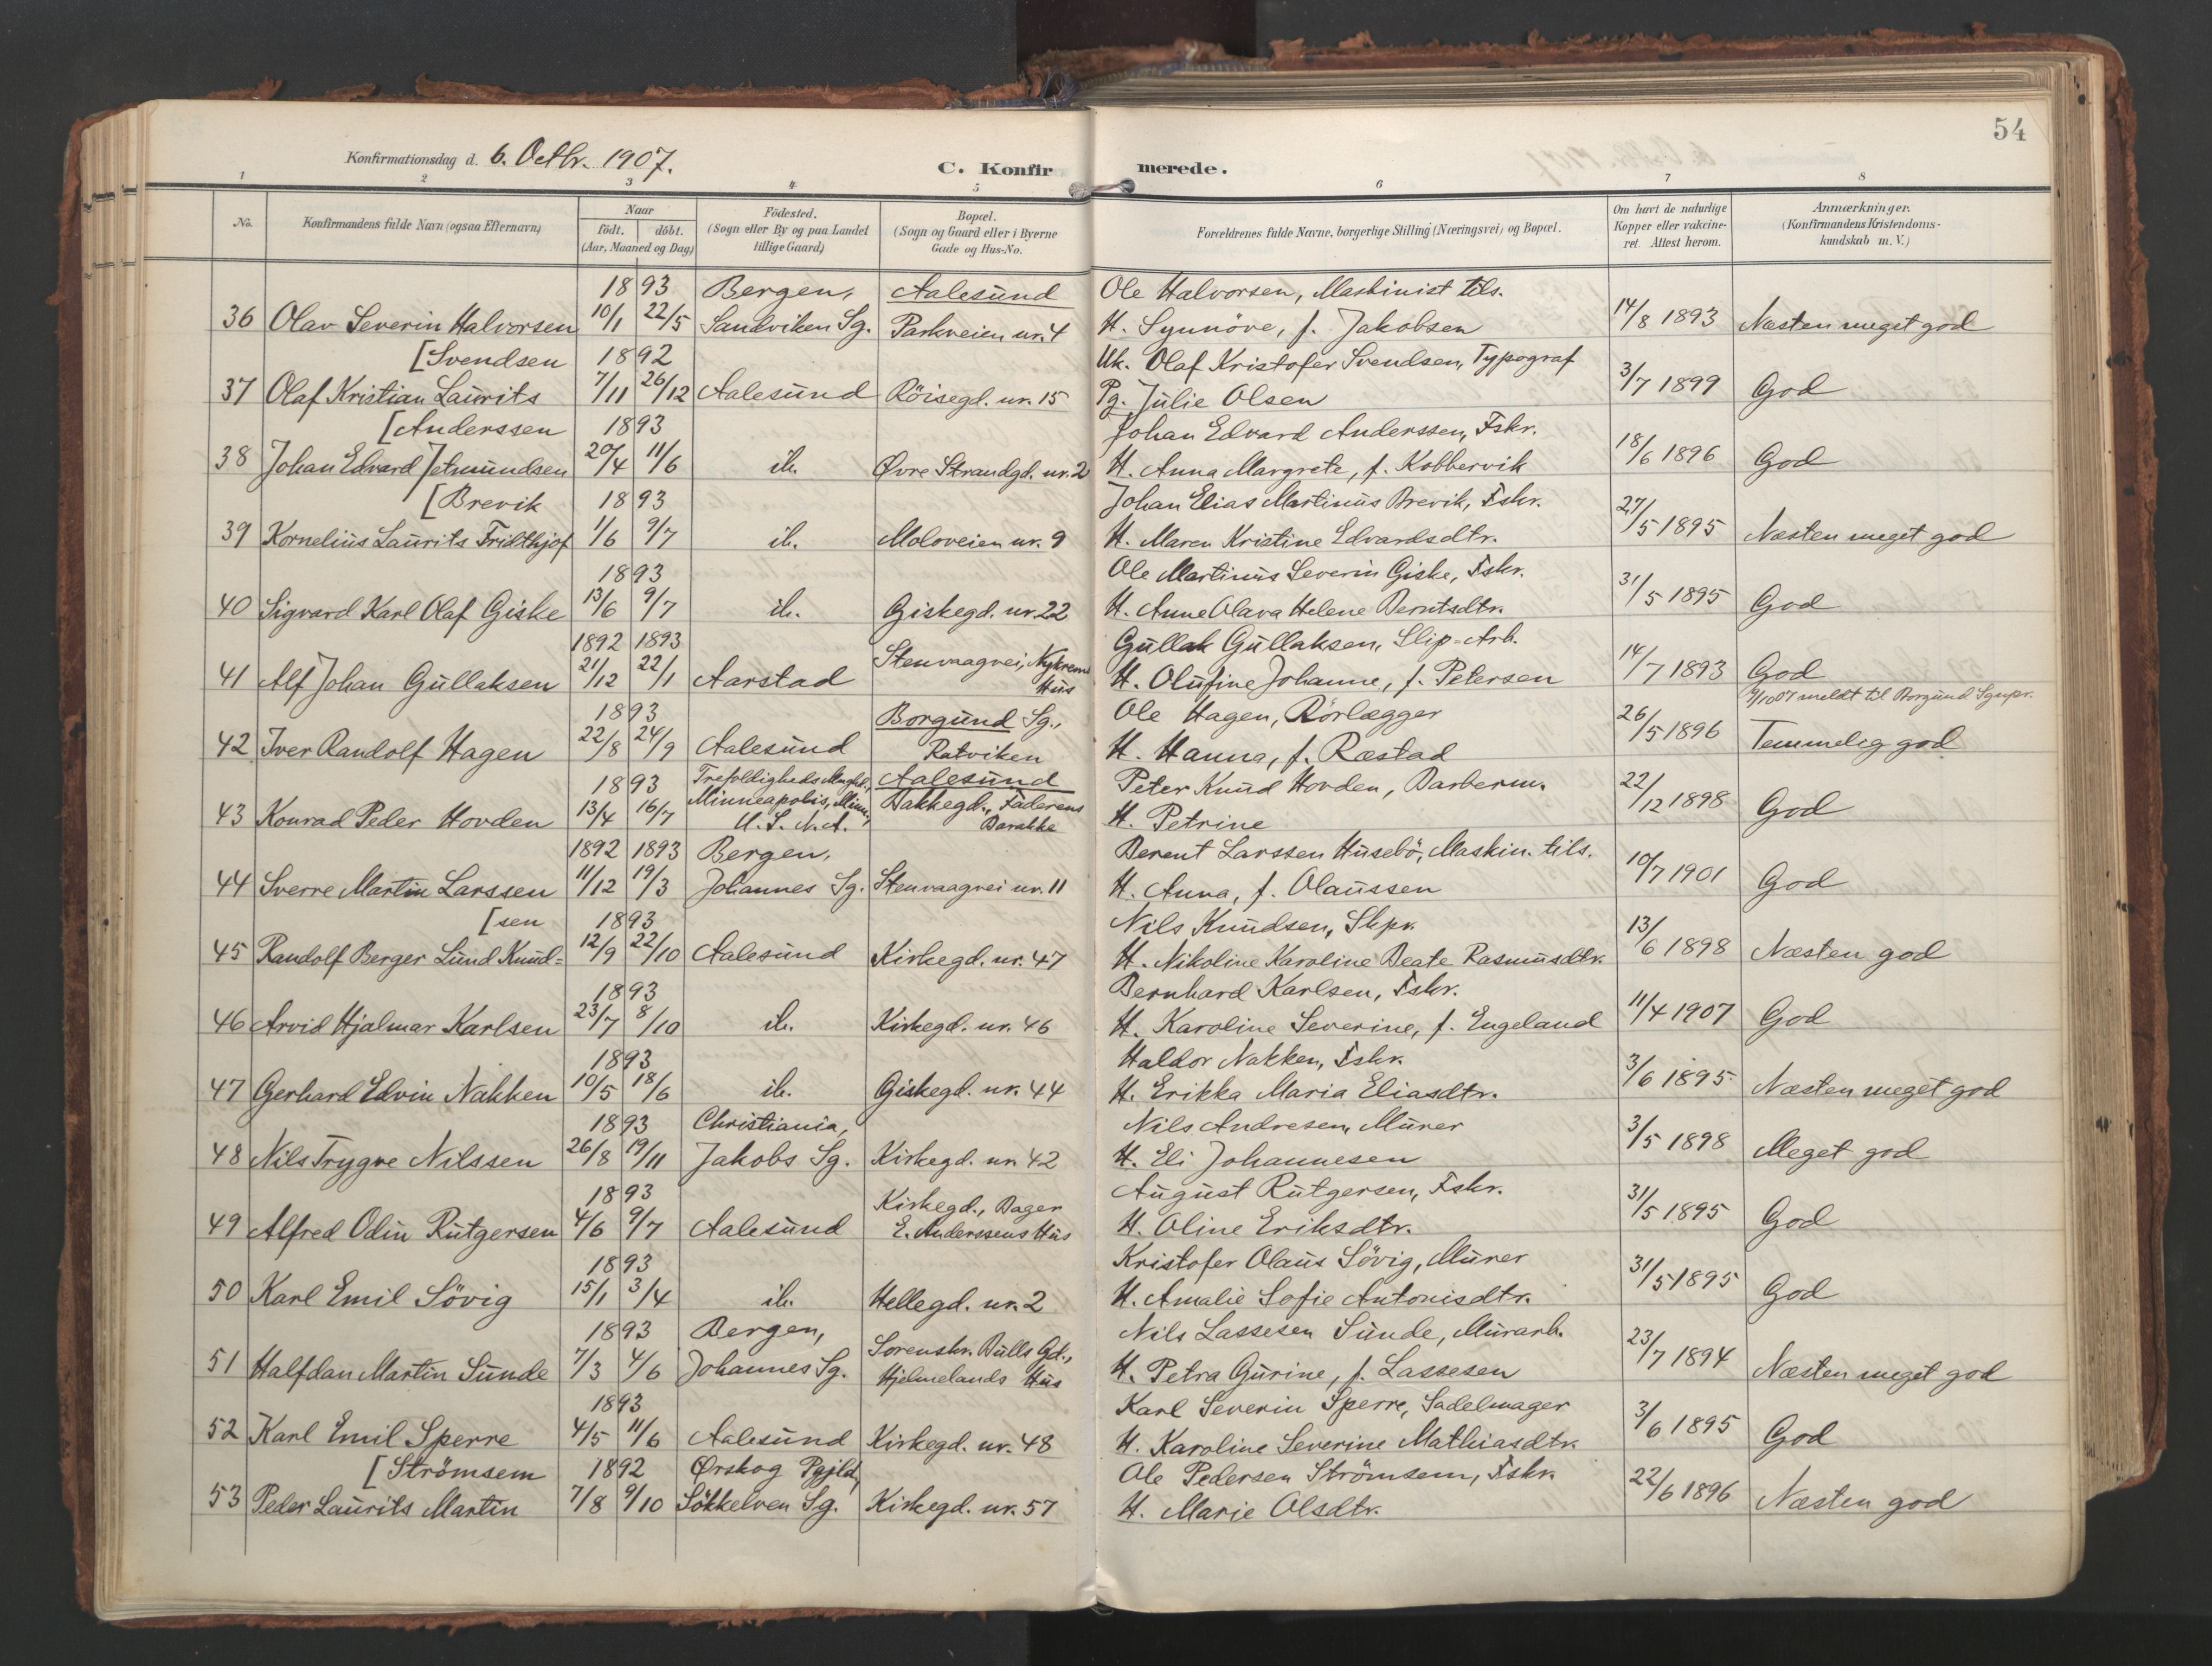 54
Konfirmationsdag d. 6. Octbr. 1907.
C. Konfir merede.
1 2 3 4 5 6 7 8
No. Konfirmandens fulde Navn (ogsaa Efternavn) Naar födt. döbt. (Aar, Maaned og Dag) Födested. (Sogn eller By og paa Landet tillige Gaard) Bopæl. (Sogn og Gaard eller i Byerne Gade og Hus-No. Forældrenes fulde Navne, borgerlige Stilling (Næringsvei) og Bopæl. Om havt de naturlige Kopper eller vakcineret. Attest herom. Anmærkninger. (Konfirmandens Kristendomskundskab m. V.)
1893 Bergen, Aalesund Ole Halvorsen, Maskinist tils.
36 Olav Severin Halvorsen 10/1 22/5 Sandviken Sg. Parkveien nr. 4 H. Synnöve, f. Jakobsen 14/8 1893 Næsten meget god
[Svendsen 1892 Uk. Olaf Kristofer Svendsen, Typograf
37 Olaf Kristian Laurits 7/11 26/12 Aalesund Röisegd. nr. 15 Pg. Julie Olsen 3/7 1899 God
[Anderssen 1893 Johan Edvard Anderssen, Fskr.
38 Johan Edvard Jetmundsen 20/4 11/6 ib. Øvre Strandgd. nr. 2 H. Anna Margrete, f. Kobbervik 18/6 1896 God
[Brevik 1893 Johan Elias Martinus Brevik, Fskr.
39 Kornelius Laurits Frithjof 1/6 9/7 ib. Moloveien nr. 9 H. Maren Kristine Edvardsdtr. 27/5 1895 Næsten meget god
1893 Ole Martinus Severin Giske, Fskr.
40 Sigvard Karl Olaf Giske 13/6 9/7 ib. Giskegd. nr. 22 H. Anne Olava Helene Berntsdtr. 31/5 1895 God
1892 1893 Stenvaagvei, Nykrems Gullak Gullaksen, Slip-Arb.
41 Alf Johan Gullaksen 21/12 22/1 Aarstad Hus H. Olufine Johanne, f. Petersen 14/7 1893 God
1893 Borgund Sg., Ole Hagen, Rörlægger meldt til Borgund Sgnpr.
42 Iver Randolf Hagen 22/8 24/9 Aalesund Ratviken H. Hanna, f. Ræstad 26/5 1896 Temmelig god
1893 Trefoldigheds Mnghd., Aalesund Peter Knud Hovden, Barberm.
Minneapolis, Minn., Bakkegd., Faderens
43 Konrad Peder Hovden 13/4 16/7 U.S.N.A. Barakke H. Petrine 22/12 1898 God
1892 1893 Bergen, Berent Larssen Husebö, Maskin. tils.
44 Sverre Martin Larssen 11/12 19/3 Johannes Sg. Stenvaagvei nr. 11 H. Anna, f. Olaussen 10/7 1901 God
[sen 1893 Nils Knudsen, Skpr.
45 Randolf Berger Lund Knud= 12/9 22/10 Aalesund Kirkegd. nr. 47 H. Nikoline Karoline Beate Rasmusdtr. 13/6 1898 Næsten god
1893 Bernhard Karlsen, Fskr.
46 Arvid Hjalmar Karlsen 23/7 8/10 ib. Kirkegd. nr. 46 H. Karoline Severine, f. Engeland 11/4 1907 God
1893 Haldor Nakken, Fskr.
47 Gerhard Edvin Nakken 10/5 18/6 ib. Giskegd. nr. 44 H. Erikka Maria Eliasdtr. 3/6 1895 Næsten meget god
1893 Christiania, Nils Andresen, Murer
48 Nils Trygve Nilssen 26/8 19/11 Jakobs Sg. Kirkegd. nr. 42 H. Eli Johannesen 3/5 1898 Meget god
1893 Kirkegd., Bager August Rutgersen, Fskr.
49 Alfred Odin Rutgersen 4/6 9/7 Aalesund E. Anderssens Hus H. Oline Eriksdtr. 31/5 1895 God
1893 Kristofer Olaus Sövig, Murer
50 Karl Emil Sövig 15/1 3/4 ib. Hellegd. nr. 2 H. Amalie Sofie Antonisdtr. 31/5 1895 God
1893 Bergen, Sorenskr. Bulls Gd., Nils Lassesen Sunde, Murarb.
51 Halfdan Martin Sunde 7/3 4/6 Johannes Sg. Hjelmelands Hus H. Petra Gurine, f. Lassesen 23/7 1894 Næsten meget god
1893 Karl Severin Sperre, Sadelmager
52 Karl Emil Sperre 4/5 11/6 Aalesund Kirkegd. nr. 48 H. Karoline Severine Mathiasdtr. 3/6 1895 God
[Strömsem 1892 Ørskog Pgjld, Ole Pedersen Strömsem, Fskr.
53 Peder Laurits Martin 7/8 9/10 Sökkelven Sg. Kirkegd. nr. 57 H. Marie Olsdtr. 22/6 1896 Næsten god